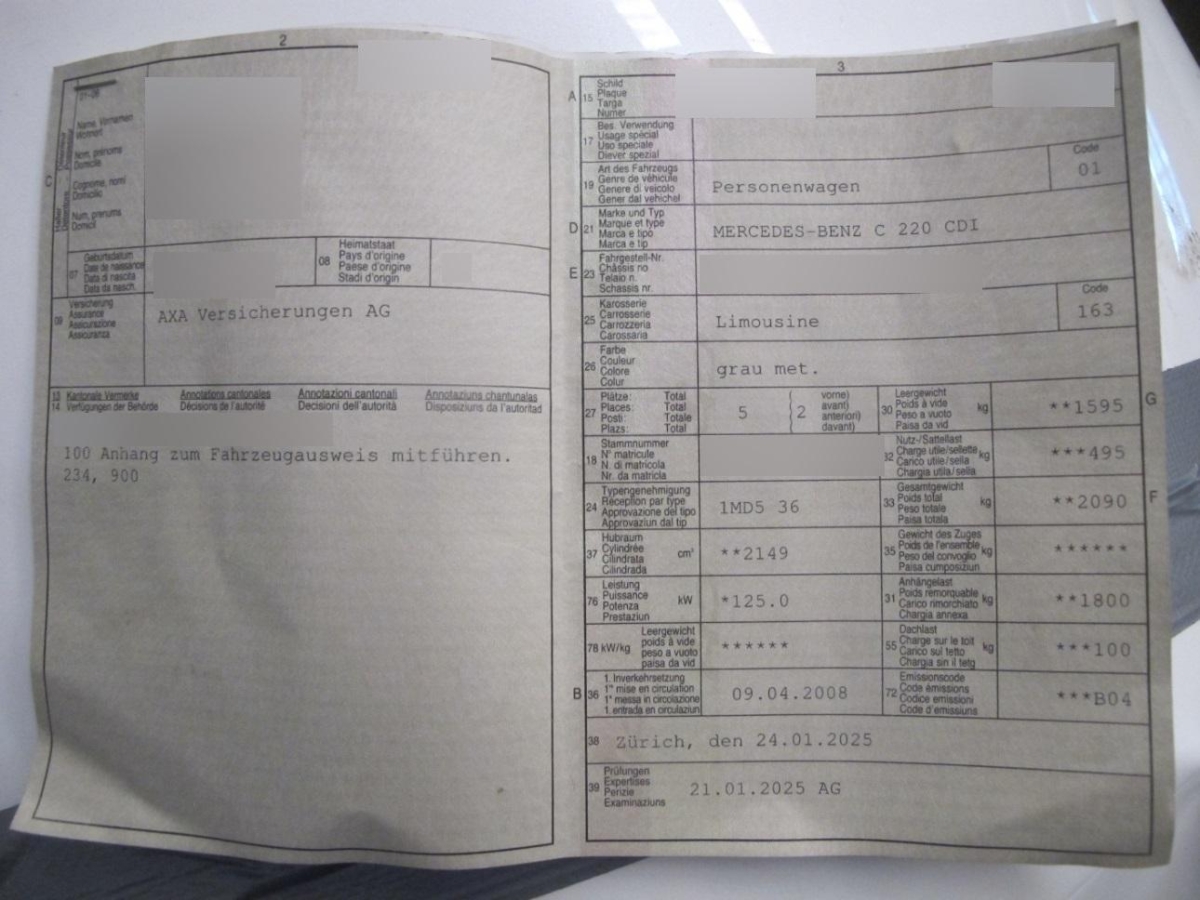 2
01-06
C
Name, Vornamen
Wohnort
Nom, prénoms
Domicile
Cognome, nomi
Domicilio
Num, prenums
Domicil
07 Geburtsdatum
Date de naissance
Data di nascita
Data da nasch.
08 Heimatstaat
Pays d'origine
Paese d'origine
Stadi d'origin
09 Versicherung
Assurance
Assicurazione
Assicuranza
AXA Versicherungen AG
13 Kantonale Vermerke Annotations cantonales Annotazioni cantonali Annotaziuns chantunalas
14 Verfügungen der Behörde Décisions de l'autorité Decisioni dell'autorità Disposiziuns da l'autoritad
100 Anhang zum Fahrzeugausweis mitführen.
234, 900
3
A 15 Schild
Plaque
Targa
Numer
17 Bes. Verwendung
Usage spécial
Uso speciale
Diever spezial
19 Art des Fahrzeugs
Genre de véhicule
Genere di veicolo
Gener dal vehichel
Personenwagen
Code
01
D 21 Marke und Typ
Marque et type
Marca e tipo
Marca e tip
MERCEDES-BENZ C 220 CDI
E 23 Fahrgestell-Nr.
Châssis no
Telaio n.
Schassis nr.
25 Karosserie
Carrosserie
Carrozzeria
Carossaria
Limousine
Code
163
26 Farbe
Couleur
Colore
Colur
grau met.
27 Plätze: Total
Places: Total
Posti: Totale
Plazs: Total
5 (2 vorne)
avant)
anteriori)
davant)
30 Leergewicht
Poids à vide
Peso a vuoto
Paisa da vid
kg **1595 G
18 Stammnummer
N° matricule
N. di matricola
Nr. da matricla
32 Nutz-/Sattellast
Charge utile/sellette
Carico utile/sella
Chargia utila/sella
kg ***495
24 Typengenehmigung
Réception par type
Approvazione del tipo
Approvaziun dal tip
1MD5 36
33 Gesamtgewicht
Poids total
Peso totale
Paisa totala
kg **2090 F
37 Hubraum
Cylindrée
Cilindrata
Cilindrada
cm³ **2149
35 Gewicht des Zuges
Poids de l'ensemble
Peso del convoglio
Paisa cumposiziun
kg ******
76 Leistung
Puissance
Potenza
Prestaziun
kW *125.0
31 Anhängelast
Poids remorquable
Carico rimorchiato
Chargia annexa
kg **1800
78 kW/kg Leergewicht
poids à vide
peso a vuoto
paisa da vid
******
55 Dachlast
Charge sur le toit
Carico sul tetto
Chargia sin il tetg
kg ***100
B 36 1. Inverkehrsetzung
1re mise en circulation
1a messa in circolazione
1. entrada en circulaziun
09.04.2008
72 Emissionscode
Code émissions
Codice emissioni
Code d'emissiuns
***B04
38 Zürich, den 24.01.2025
39 Prüfungen
Expertises
Perizie
Examinaziuns
21.01.2025 AG